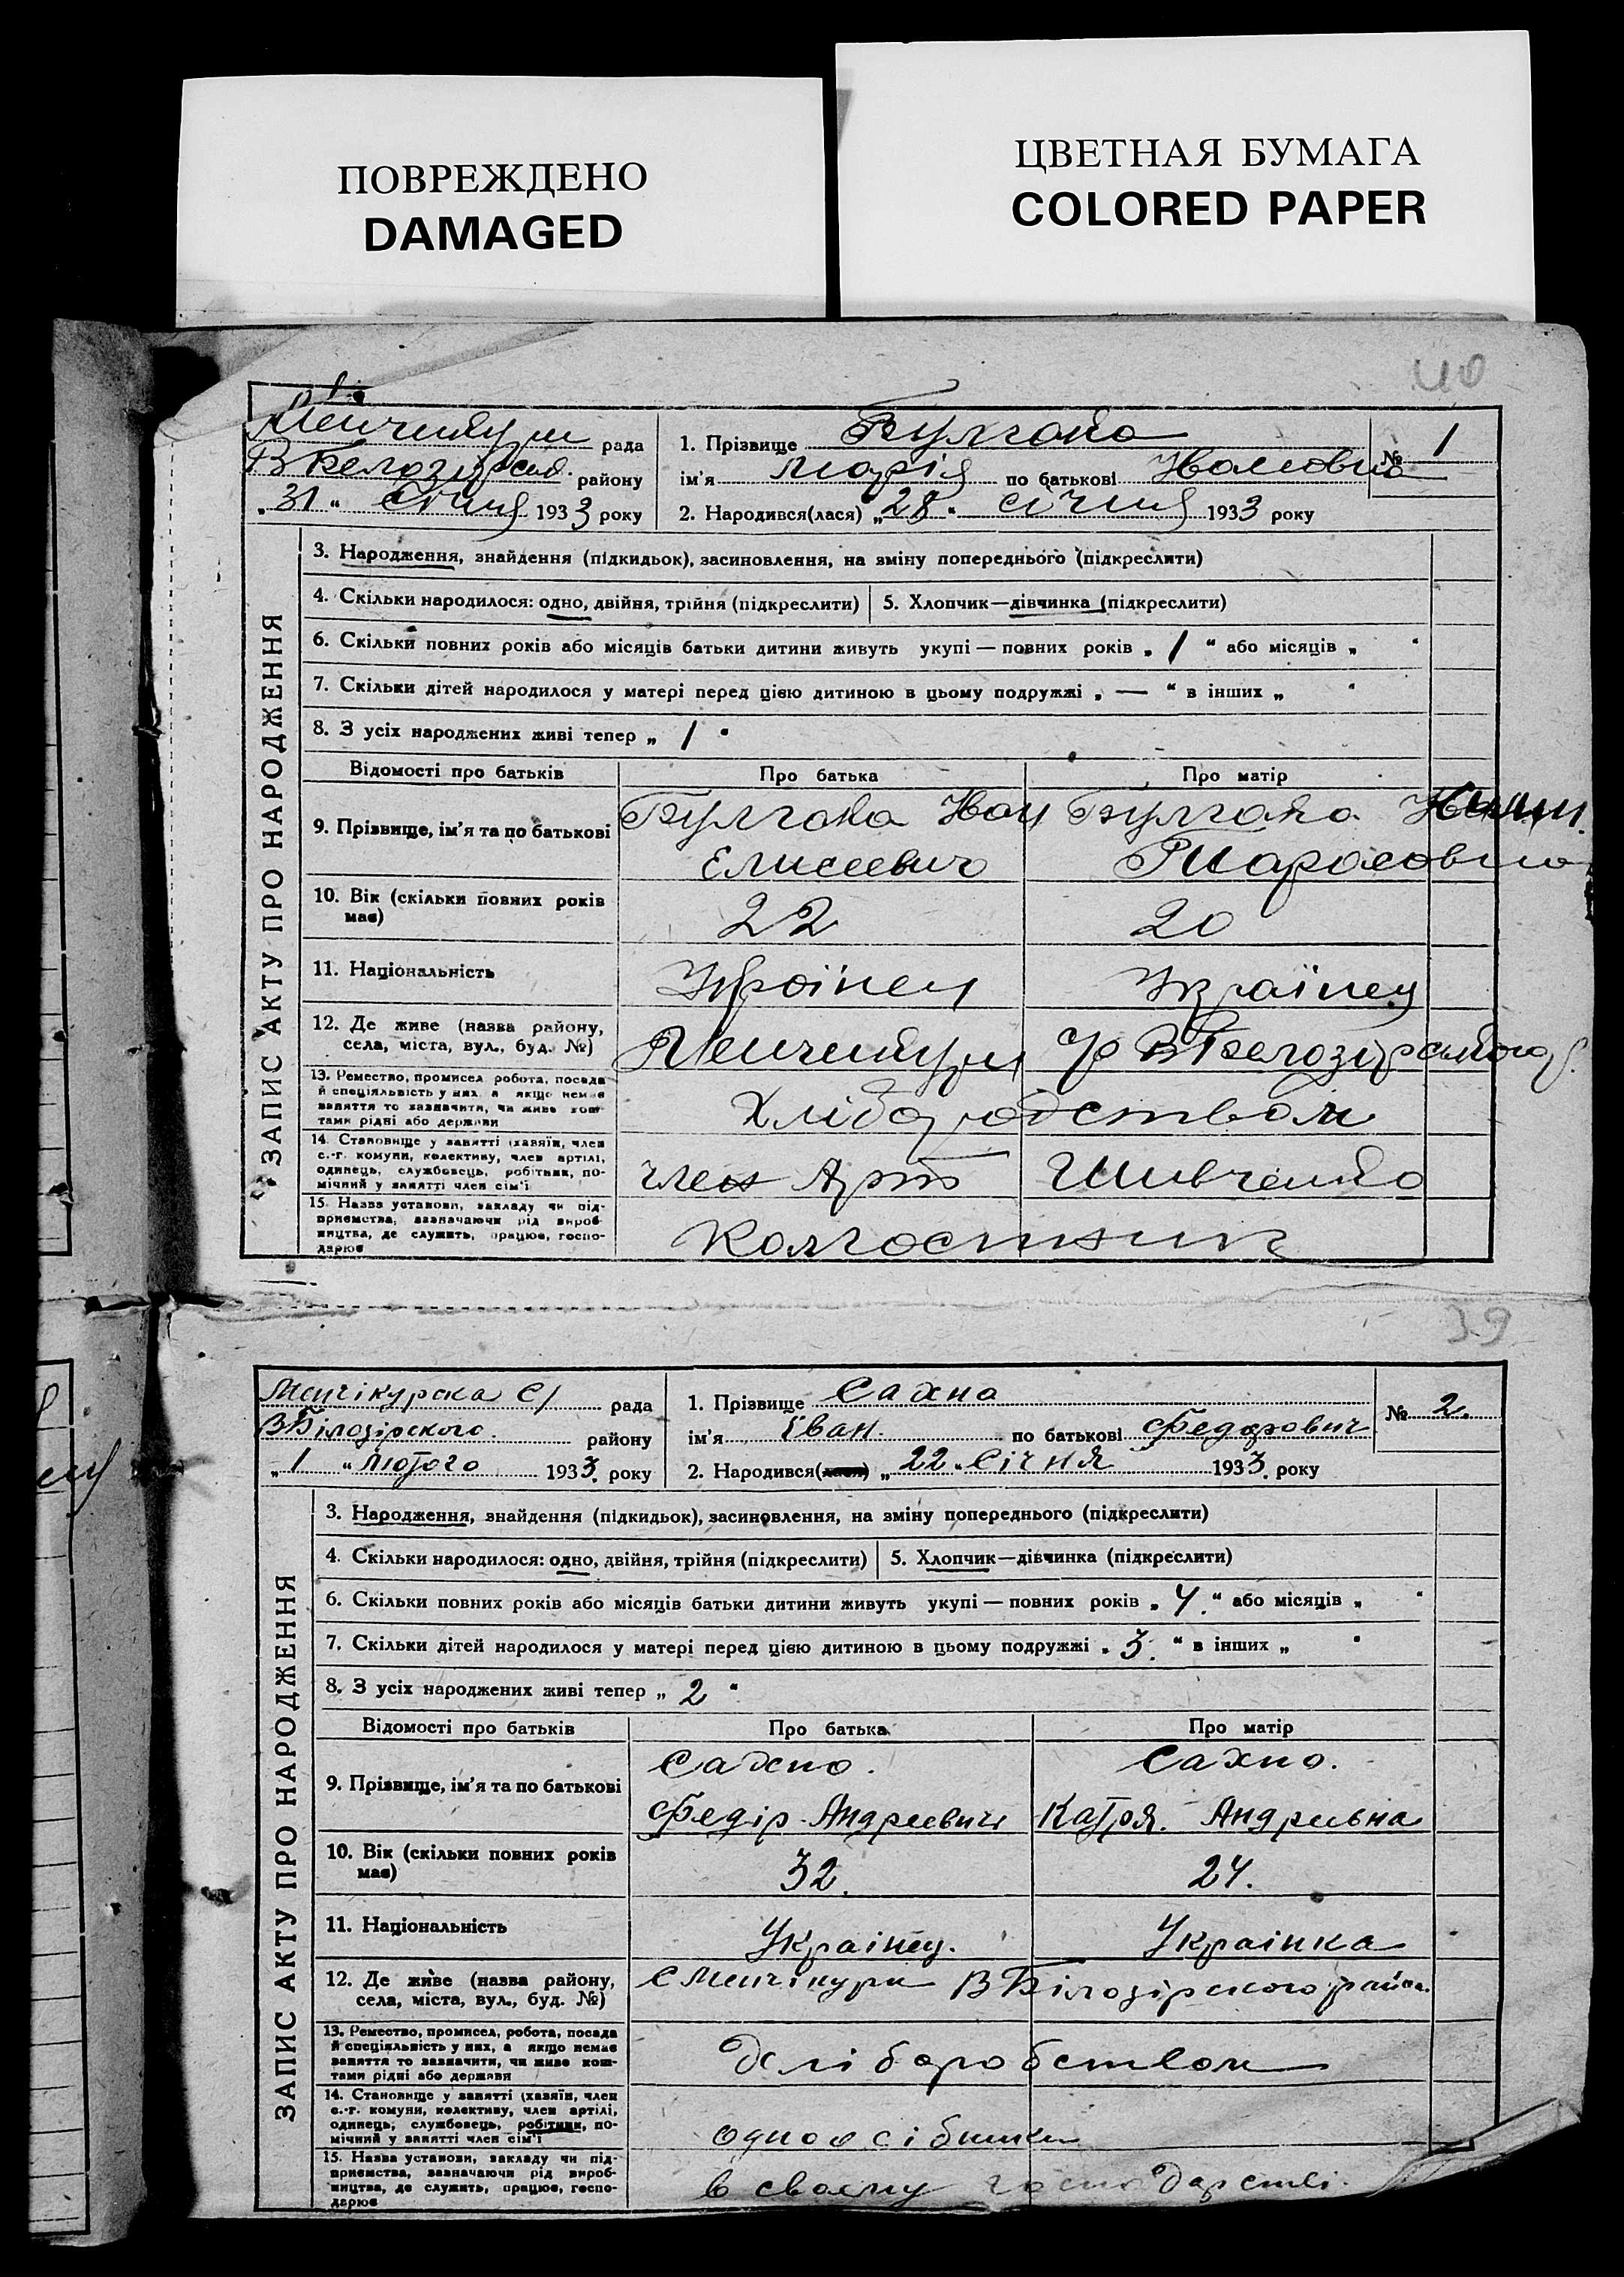 ПОВРЕЖДЕНО
DAMAGED
ЦВЕТНАЯ БУМАГА
COLORED PAPER
40
Менчикури рада
В Белозірськ. району
„31“ Січня 1933 року
1. Прізвище Булгака
№ 1
ім'я Марія по батькові Ивановна
2. Народився(лася) „28“ січня 1933 року
ЗАПИС АКТУ ПРО НАРОДЖЕННЯ
3. Народження, знайдення (підкидьок), засиновлення, на зміну попереднього (підкреслити)
4. Скільки народилося: одно, двійня, трійня (підкреслити) 5. Хлопчик—дівчинка (підкреслити)
6. Скільки повних років або місяців батьки дитини живуть укупі — повних років „ 1 “ або місяців „ “
7. Скільки дітей народилося у матері перед цією дитиною в цьому подружжі „ — “ в інших „ “
8. З усіх народжених живі тепер „ 1 “
Відомості про батьків Про батька Про матір
9. Прізвище, ім'я та по батькові Булгака Иван Булгака
Елисеевич Тарасовна
10. Вік (скільки повних років має) 22 20
11. Національність Украінец Українец
12. Де живе (назва району, села, міста, вул., буд. №) Менчикури В Белозірського р.
13. Ремество, промисел робота, посада й спеціяльність у них а якщо немає заняття то зазначити, чи живе коштами рідні або держави Хліборобством
14. Становище у занятті (хазяїн, член с.-г. комуни, колективу, член артілі, одинець, службовець, робітник, помічний у занятті член сім'ї член Арт Шивченко
15. Назва установи, закладу чи підприємства, зазначаючи рід виробництва, де служить, працює, господарює Колгоспник
39
Менчікурска С/ рада
В Білозірского району
„1“ Лютого 1933. року
1. Прізвище Сахно
№ 2.
ім'я Іван. по батькові Федорович
2. Народився(лася) „22“ Січня 1933. року
ЗАПИС АКТУ ПРО НАРОДЖЕННЯ
3. Народження, знайдення (підкидьок), засиновлення, на зміну попереднього (підкреслити)
4. Скільки народилося: одно, двійня, трійня (підкреслити) 5. Хлопчик—дівчинка (підкреслити)
6. Скільки повних років або місяців батьки дитини живуть укупі — повних років „ 4. “ або місяців „ “
7. Скільки дітей народилося у матері перед цією дитиною в цьому подружжі „ 3. “ в інших „ “
8. З усіх народжених живі тепер „ 2 “
Відомості про батьків Про батька Про матір
9. Прізвище, ім'я та по батькові Сахно. Сахно.
Федір Андреевич Катря. Андреевна
10. Вік (скільки повних років має) 32. 24.
11. Національність Украінец. Украінка
12. Де живе (назва району, села, міста, вул., буд. №) С Менчікури В Білозірского район.
13. Ремество, промисел, робота, посада й спеціяльність у них, а якщо немає заняття то зазначити, чи живе коштами рідні або держави Хліборобством
14. Становище у занятті (хазяїн, член с.-г. комуни, колективу, член артілі, одинець, службовець, робітник, помічний у занятті член сім'ї одноосібники
15. Назва установи, закладу чи підприємства, зазначаючи рід виробництва, де служить, працює, господарює в своему господарстві.